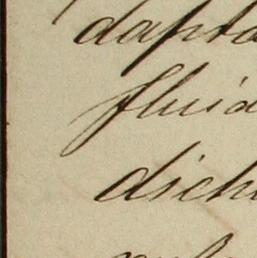 dapta
fluid
dich